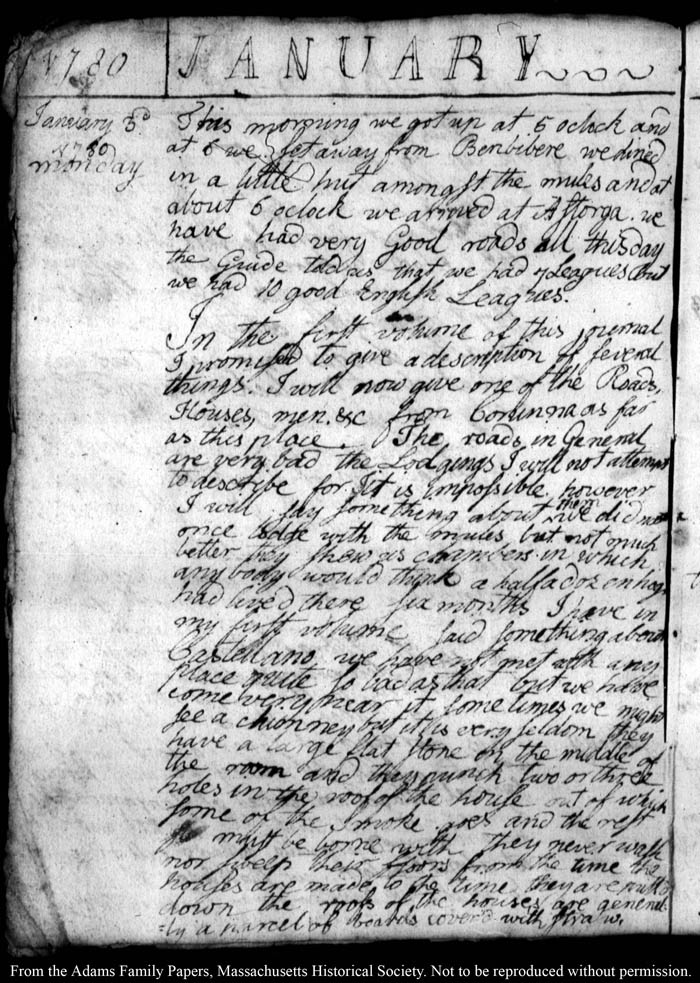 1780
JANUARY
January 3d
1780
monday
This morning we got up at 5 oclock and
at 6 we set away from Benbibere we dined
in a little hut amongst the mules and at
about 6 oclock we arrived at Astorga. we
have had very Good roads all this day
the Guide told us that we had 7 Leagues but
we had 10 good English Leagues.
In the first volume of this journal
I promised to give a description of several
things. I will now give one of the Roads,
Houses, men. &c from Corunna as far
as this place. The roads in General
are very bad the Lodgings I will not attempt
to describe for it is impossible however
I will say something about them we did not
once lodge with the mules but not much
better they shew us chambers in which
any body would think a half a doz en hogs
had lived there six months I have in
my first volume said something about
Castellano we have not met with any
place quite so bad as that but we have
come very near it sometimes we might
see a chimney but it is very seldom they
have a large flat stone in the middle of
the room and they punch two or three
holes in the roof of the house out of which
some of the smoke goes and the rest
must be borne with they never wash
nor sweep their floors from the time the
houses are made to the time they are pull'd
down the roofs of the houses are general
=ly a parcel of boards cover'd with straw.
From the Adams Family Papers, Massachusetts Historical Society. Not to be reproduced without permission.